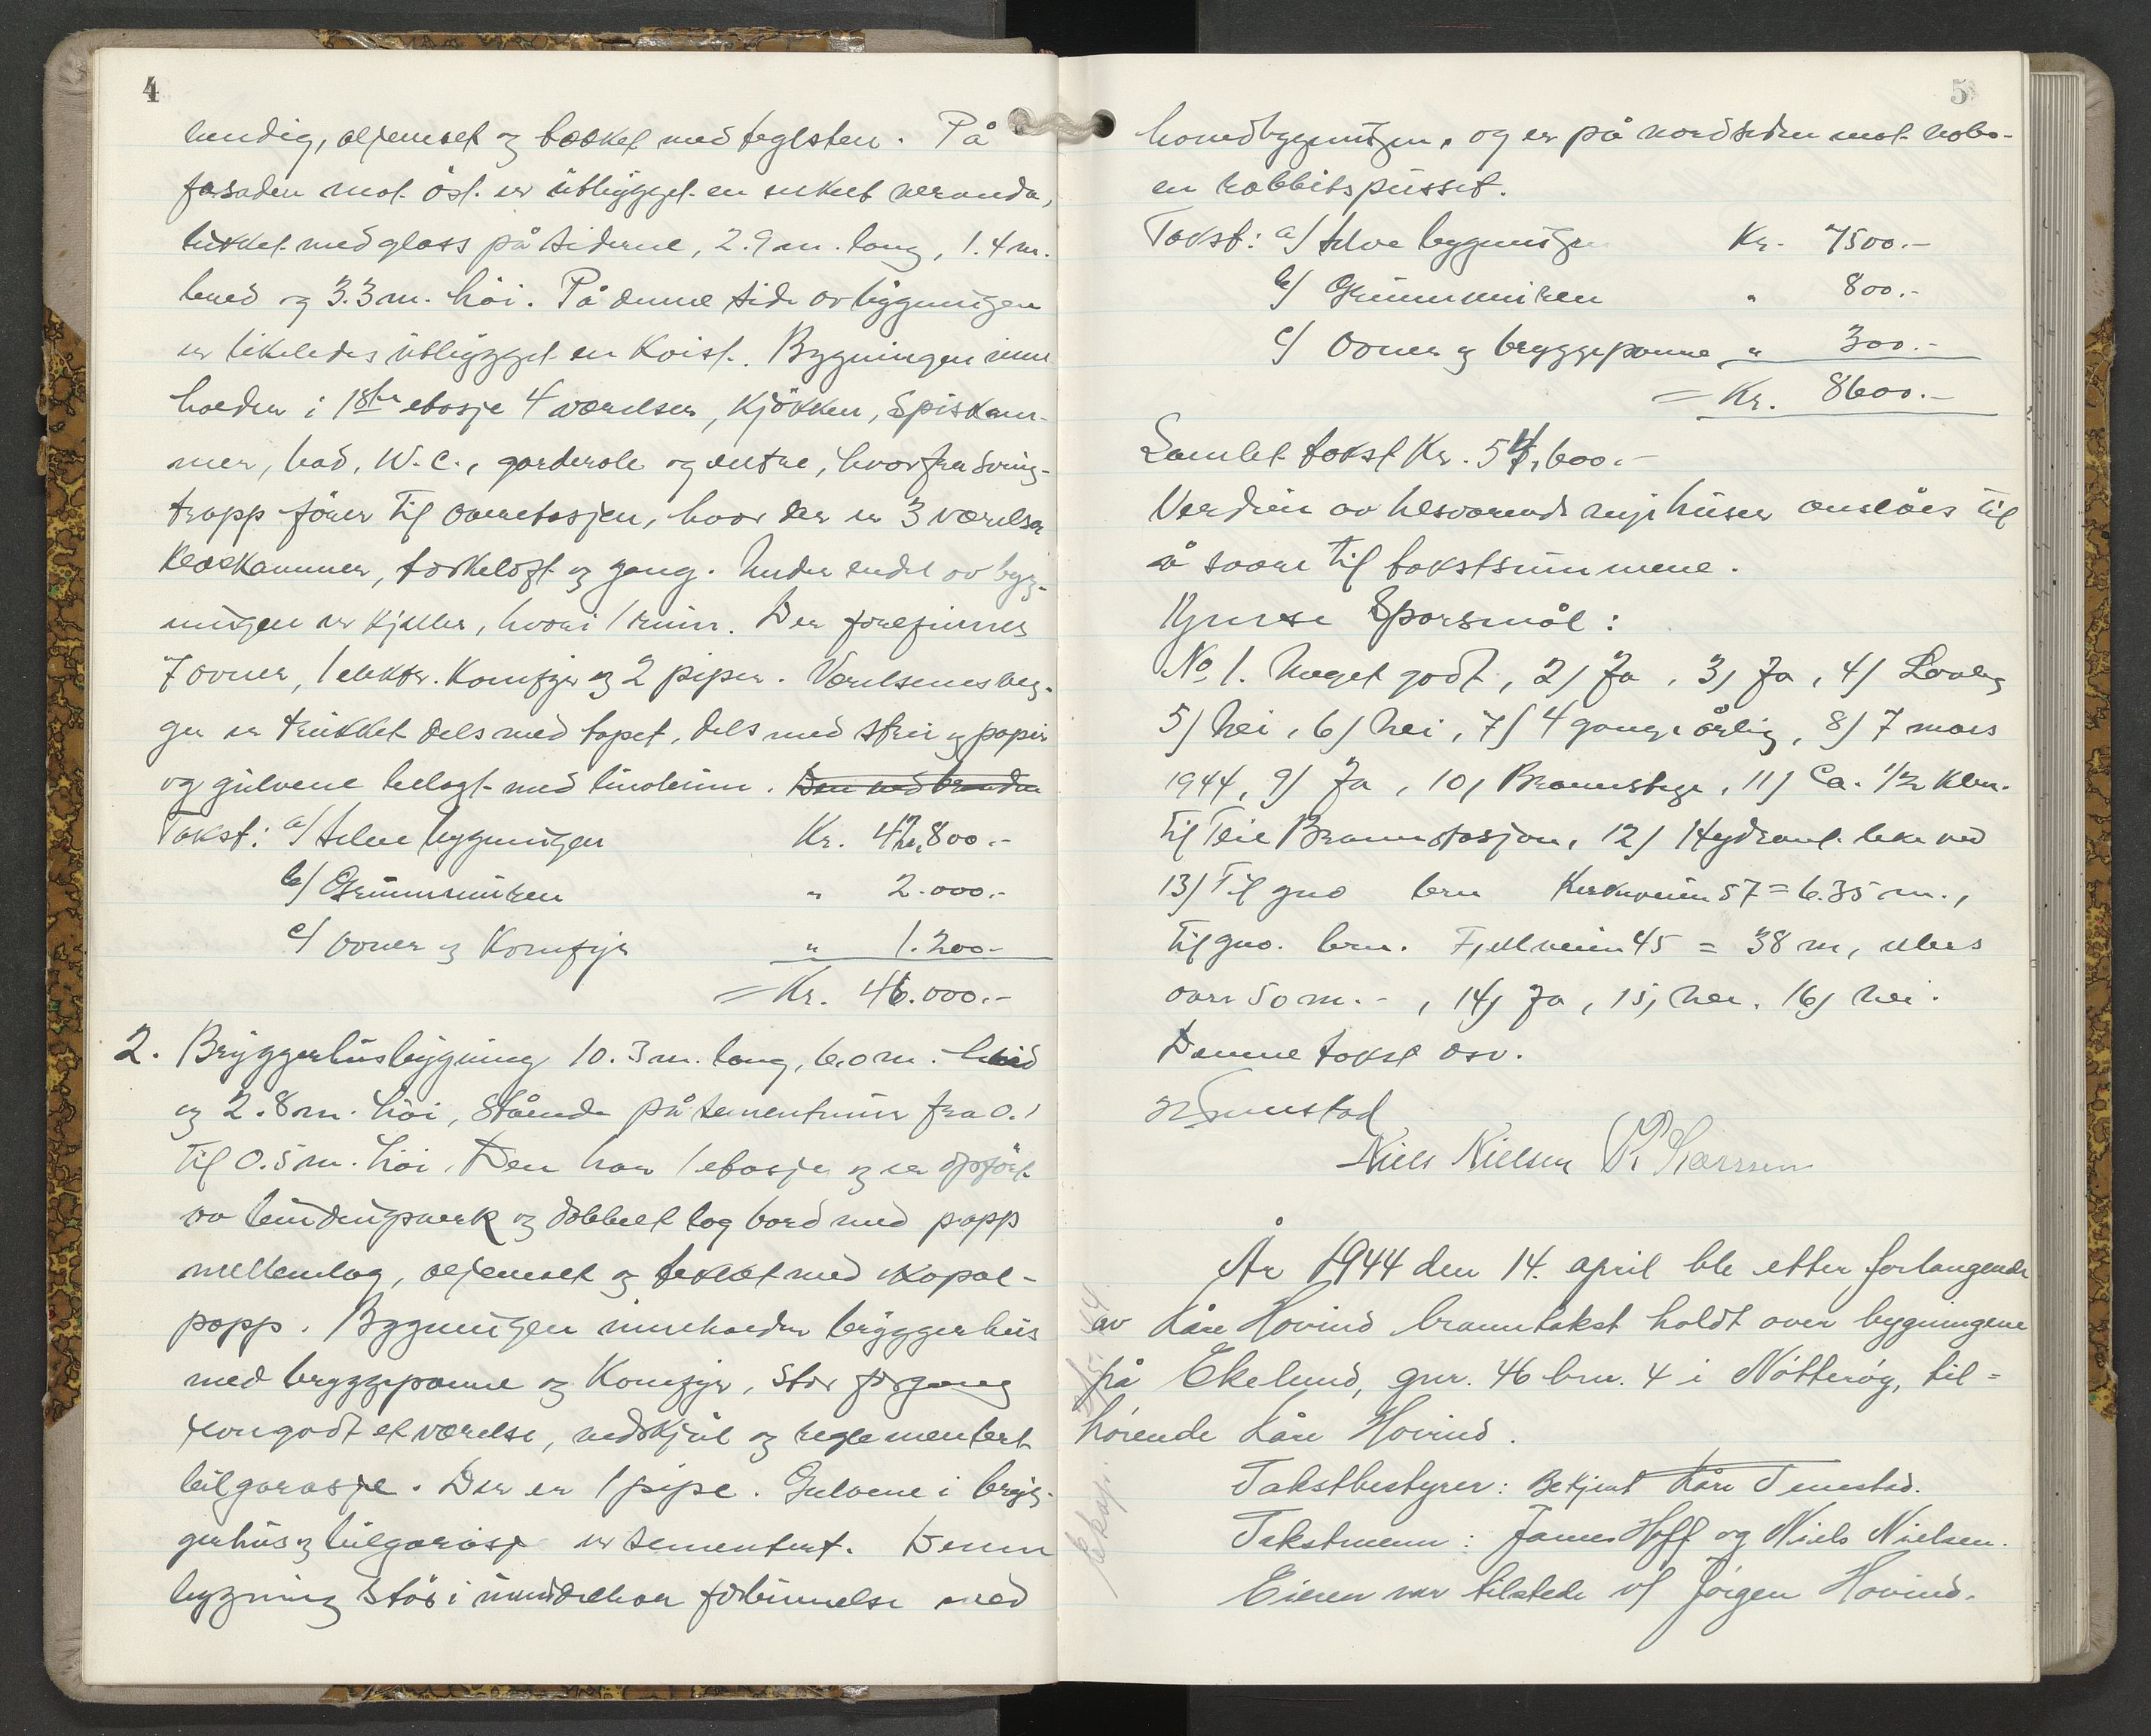 4
vendig, oljemalt og tækket med teglsten. På
fasaden mot öst er utbygget en enkelt veranda,
lukket med glass på siderne, 2.9 m. lang, 1.4 m.
bred og 3.3 m. höi. På denne side av bygningen
er likeledes utbygget en Kvist. Bygningen inne
holder i 1ste etasje 4 værelser, Kjökken, Spiskam-
mer, bad, W.C., garderobe og entre, hvorfra sving-
trapp förer til overetasjen, hvor der er 3 værelser
Klæskammer, törkeloft og gang. Under endel av byg-
ningen er Kjeller, hvori 1 rum. Der forefinnes
7 ovner, 1 elektr. Komfyr og 2 piper. Værelsenes veg-
ger er trukket dels med tapet, dels med strie og papir
og gulvene belagt med linoleum. Den nedbrendte
Takst: a/ selve bygningen Kr. 42,800.-
b/ Grunnmuren " 2.000.-
c/ Ovner og Komfyr " 1.200.-
= Kr. 46.000.-
2. Bryggerhusbygning 10.3 m. lang, 6.0 m. bred
og 2.8 m. höi, Stående på sementmur fra 0.1
til 0.5 m. höi. Den har 1 etasje og er opfört
av bindingsverk og dobbelt lag bord med papp
mellemlag, oljemalt og tekket med Kopal-
papp. Bygningen inneholder bryggerhus
med bryggepanne og Komfyr, stor forgang
et værelse, vedskjul og reglementert
bilgarasje. Der er 1 pipe. Gulvene i bryg-
gerhus og bilgarasje er sementert. Denne
bygning står i umiddelbar forbinnelse med
5
hovedbygningen, og er på nordsiden mot nabo-
en rabbitspusset.
Takst: a/ selve bygningen Kr. 7500.-
b/ Grunnmuren " 800.-
c/ Ovner og bryggepanne " 300.-
= Kr. 8600.-
Samlet takst Kr. 54,600.-
Verdien av tilsvarende nye huser anslåes til
å svare til takstsummene.
Spörsmål:
No 1. Meget godt, 2/ Ja, 3/ Ja, 4/ Lovlig
5/ Nei, 6/ Nei, 7/ 4 gange årlig, 8/ 7 mars
1944, 9/ Ja, 10/ Brannstige, 11/ Ca. 1/2 Klm.
til Teie Brannstasjon, 12/ Hydrant like ved
13/ Til gno brn Kirkeveien 57 = 6.35 m.,
til gno. brn. Fjellveien 45 = 38 m, ellers
over 50 m.-, 14/ Ja, 15/ Nei, 16/ Nei.
Denne takst osv.
Niels Nielsen
År 1944 den 14. april ble etter forlangende
av Kåre Hovind branntakst holdt over bygningene
på Ekelund, gnr. 46 brn. 4 i Nötteröy, til=
hörende Kåre Hovind.
Takstbestyrer: Betjent Kåre Tennstad.
Takstmenn: James Hoff og Niels Nielsen.
Eieren var tilstede v/ Jörgen Hovind.